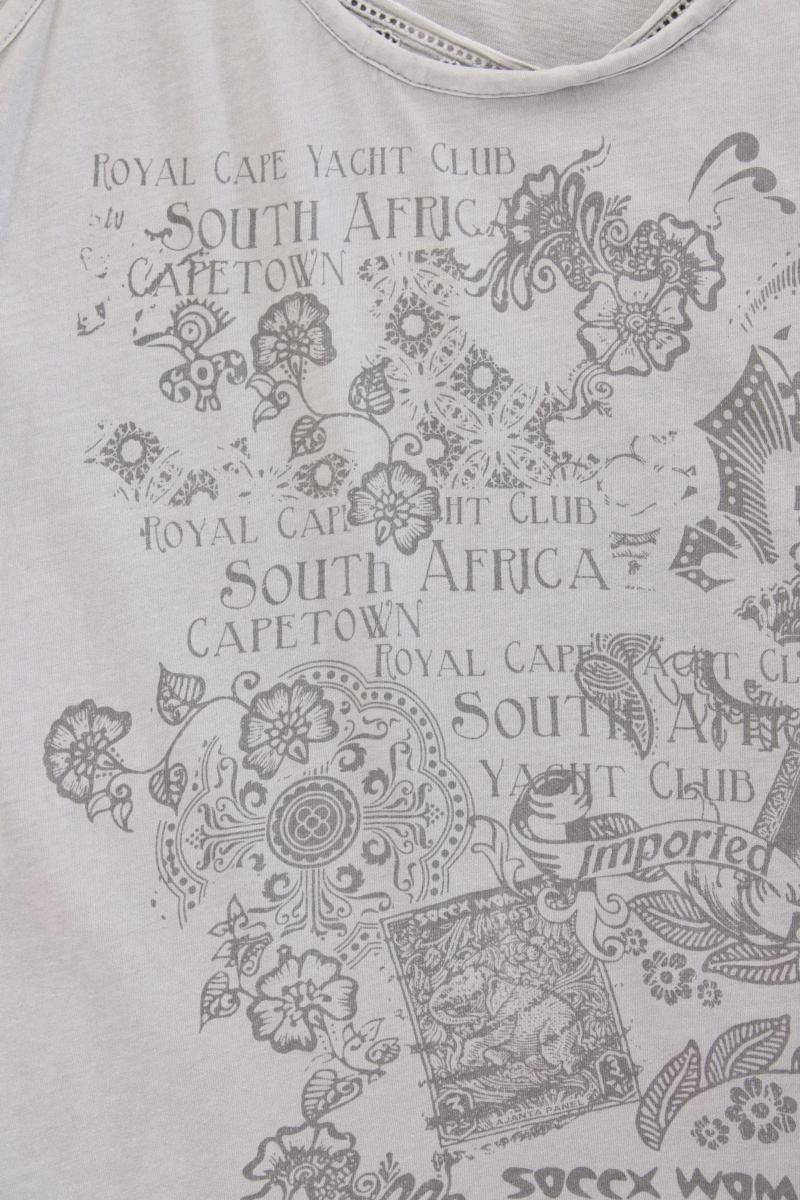 ROYAL CAPE YACHT CLUB
SOUTH AFRICA
CAPETOWN
ROYAL CAPE YACHT CLUB
SOUTH AFRICA
CAPETOWN
ROYAL CAPE YACHT CL
SOUTH AFR
YACHT CLUB
imported
SOCCX WOM
POST
3 3
AJANTA PANEL
SOCCX WOM